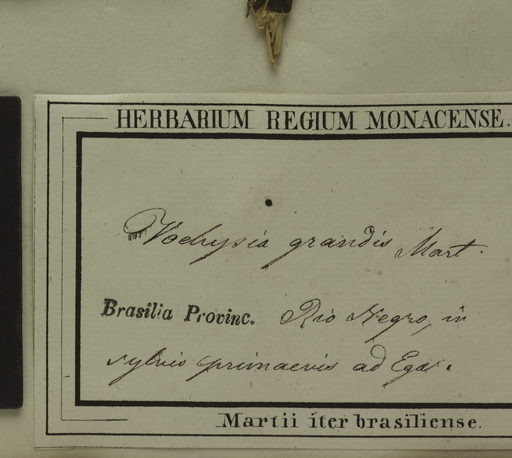 HERBARIUM REGIUM MONACENSE.
Vochysia grandis Mart.
Brasilia Provinc. Rio Negro, in
sylvis primaevis ad Ega.
Martii iter brasiliense.